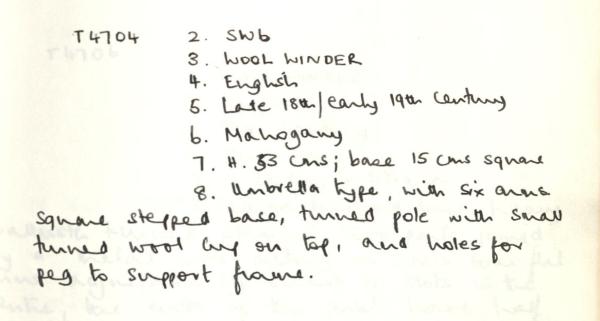 T4704 2. SWb
3. WOOL WINDER
4. English
5. Late 18th/early 19th Century
6. Mahogany
7. H. 53 cms; base 15 cms square
8. Umbrella type, with six arms
square stepped base, turned pole with small
turned wool cup on top, and holes for
peg to support frame.